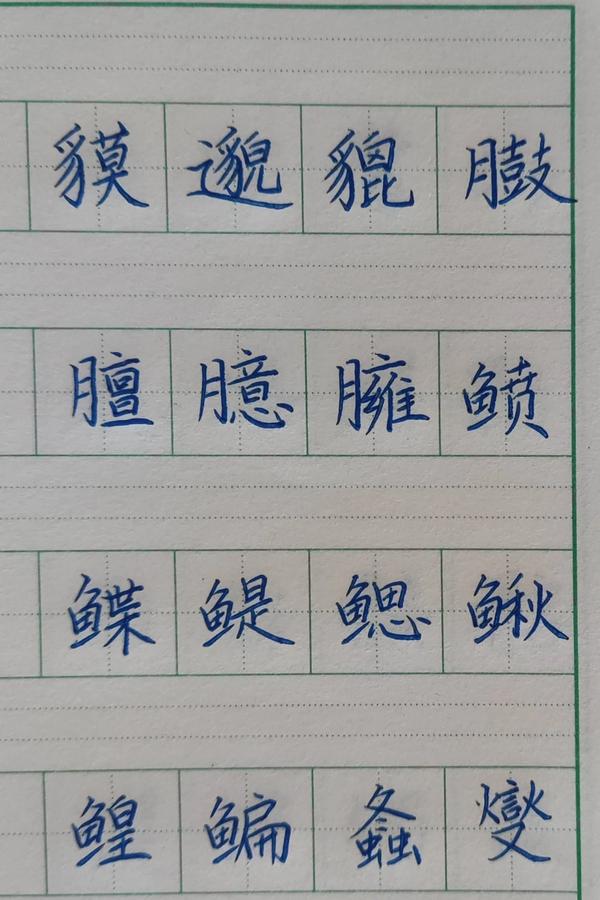 貘邈貔臌
膻臆臃鲼
鲽鳀鳃鳅
鳇鳊螽燮